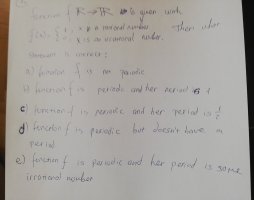 function f R→R is given with
f(x)= { 1, x is a rational number
x is an irrational number. Then what
statement is correct:
a) function f is not periodic
function f is periodic and her period is 1
c) function f is periodic and her period is 1/2
d) function f is periodic but doesn't have a
period
e) function f is periodic and her period is some
irrational number